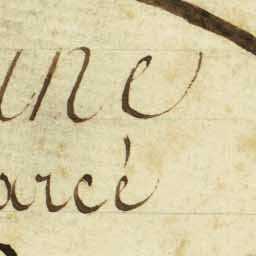 une
arcé